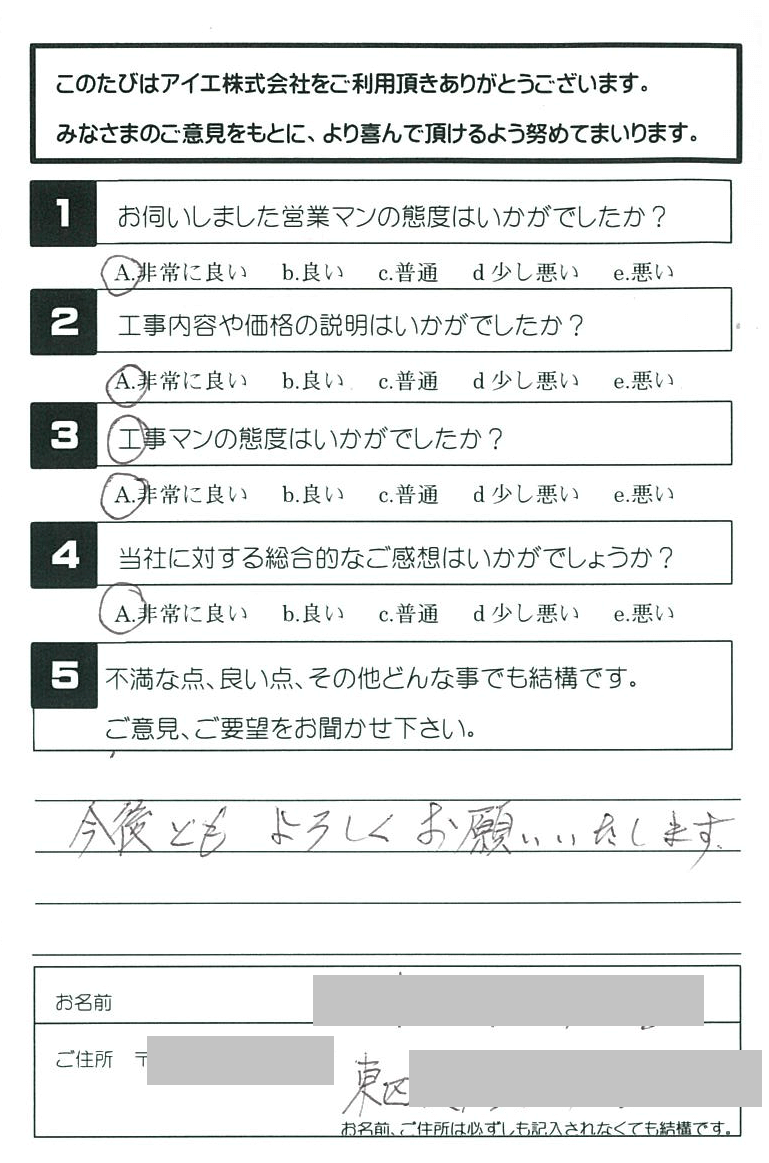 このたびはアイエ株式会社をご利用頂きありがとうございます。
みなさまのご意見をもとに、より喜んで頂けるよう努めてまいります。
1 お伺いしました営業マンの態度はいかがでしたか？
A.非常に良い b.良い c.普通 d少し悪い e.悪い
2 工事内容や価格の説明はいかがでしたか？
A.非常に良い b.良い c.普通 d少し悪い e.悪い
3 工事マンの態度はいかがでしたか？
A.非常に良い b.良い c.普通 d少し悪い e.悪い
4 当社に対する総合的なご感想はいかがでしょうか？
A.非常に良い b.良い c.普通 d少し悪い e.悪い
5 不満な点、良い点、その他どんな事でも結構です。
ご意見、ご要望をお聞かせ下さい。
今後とも よろしく お願いいたします.
お名前
ご住所 〒
東区
お名前、ご住所は必ずしも記入されなくても結構です。